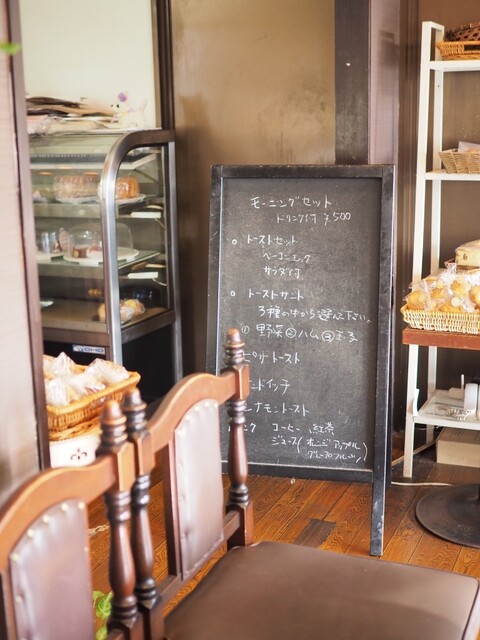 モーニングセット
ドリンク付 ¥500
○ トーストセット
ベーコンエッグ
サラダ付
○ トーストサンド
3種の中から選んで下さい。
① 野菜 ② ハム ③ 玉子
ピザトースト
ドイッチ
ナモントースト
ンク コーヒー 紅茶
ジュース(オレンジ アップル
グレープフルーツ)